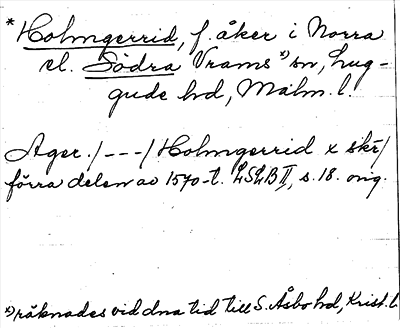 * Holmgerrid, f. åker i Norra
el. Södra Vrams x) sn, Lug-
gude hd, Malm. l.
Ager. /---/ Holmgerrid x skr/
förra delen av 1570-t. LSLB II, s. 18. orig.
x) räknades vid dna tid till S. Åsbo hd, Krist. l.